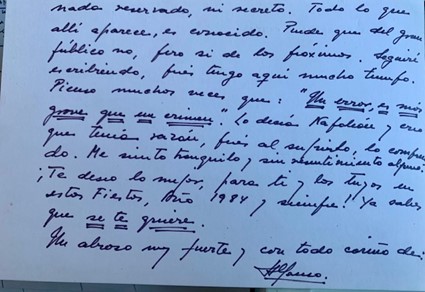 nada reservado, ni secreto. Todo lo que
allí aparece, es conocido. Puede que del gran
público no, pero si de los próximos. Seguiré
escribiendo, pues tengo aqui mucho tiempo.
Pienso muchas veces que: "Un error, es más
grave que un crimen." Lo decía Napoleón y creo
que tenía razón, pues al sufrirlo, lo compren
do. Me siento tranquilo y sin resentimiento alguno.
¡Te deseo lo mejor, para ti y los tuyos en
estas Fiestas, Año 1984 y siempre! Ya sabes
que se te quiere.
Un abrazo muy fuerte y con todo cariño de:
Alfonso.